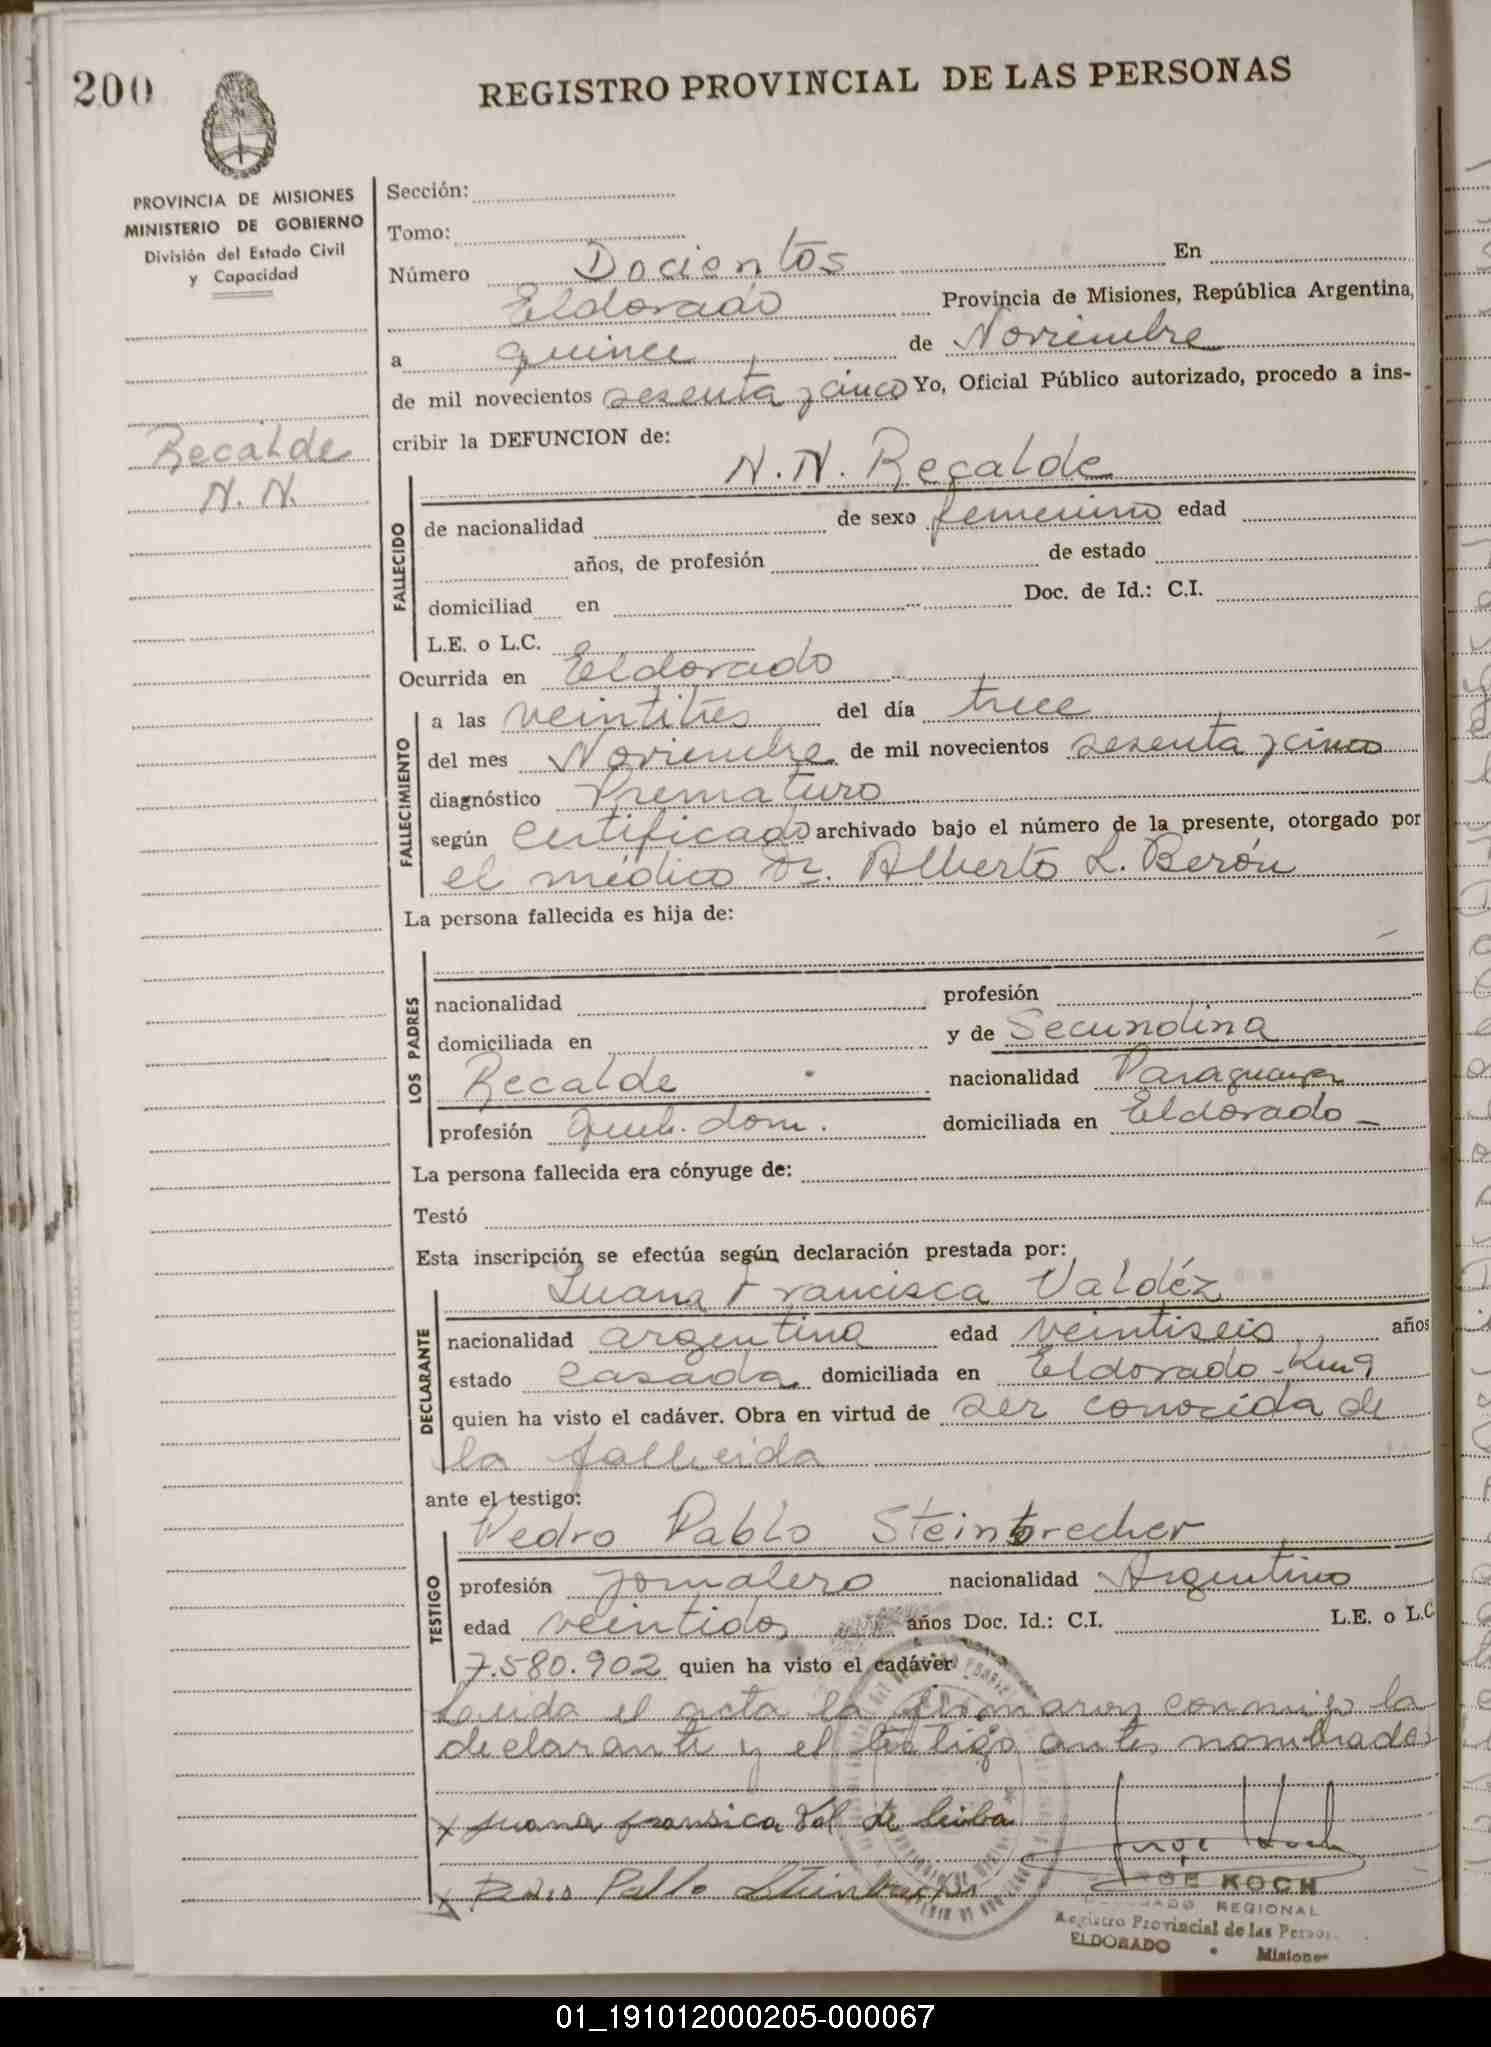 200
REGISTRO PROVINCIAL DE LAS PERSONAS
PROVINCIA DE MISIONES
MINISTERIO DE GOBIERNO
División del Estado Civil
y Capacidad
Recalde
N. N.
Sección:
Tomo:
Número Docientos En
Eldorado Provincia de Misiones, República Argentina,
a quince de Noviembre
de mil novecientos sesenta y cinco Yo, Oficial Público autorizado, procedo a ins-
cribir la DEFUNCION de:
N. N. Recalde
FALLECIDO
de nacionalidad de sexo femenino edad
años, de profesión de estado
domiciliad en Doc. de Id.: C.I.
L.E. o L.C.
Ocurrida en Eldorado
FALLECIMIENTO
a las veintitres del día trece
del mes Noviembre de mil novecientos sesenta y cinco
diagnóstico Prematuro
según Certificado archivado bajo el número de la presente, otorgado por
el médico Dr. Alberto L. Berón
La persona fallecida es hija de:
LOS PADRES
nacionalidad profesión
domiciliada en y de Secundina
Recalde nacionalidad Paraguaya
profesión Queh. dom. domiciliada en Eldorado
La persona fallecida era cónyuge de:
Testó
Esta inscripción se efectúa según declaración prestada por:
DECLARANTE
Juana Francisca Valdéz
nacionalidad argentina edad veintiseis años
estado casada domiciliada en Eldorado - Km 9
quien ha visto el cadáver. Obra en virtud de ser conocida de
la fallecida
ante el testigo:
TESTIGO
Pedro Pablo Steinbrecher
profesión jornalero nacionalidad Argentino
edad veintidos años Doc. Id.: C.I. L.E. o L.C
7.580.902 quien ha visto el cadáver
Leida el acta la firmaron conmigo la
declarante y el testigo antes nombrados
x Juana fransica Val de
x Pedro Pablo
Jorge Koch
KOCH
REGIONAL
Registro Provincial de las Person
ELDORADO • Misiones
01_191012000205-000067